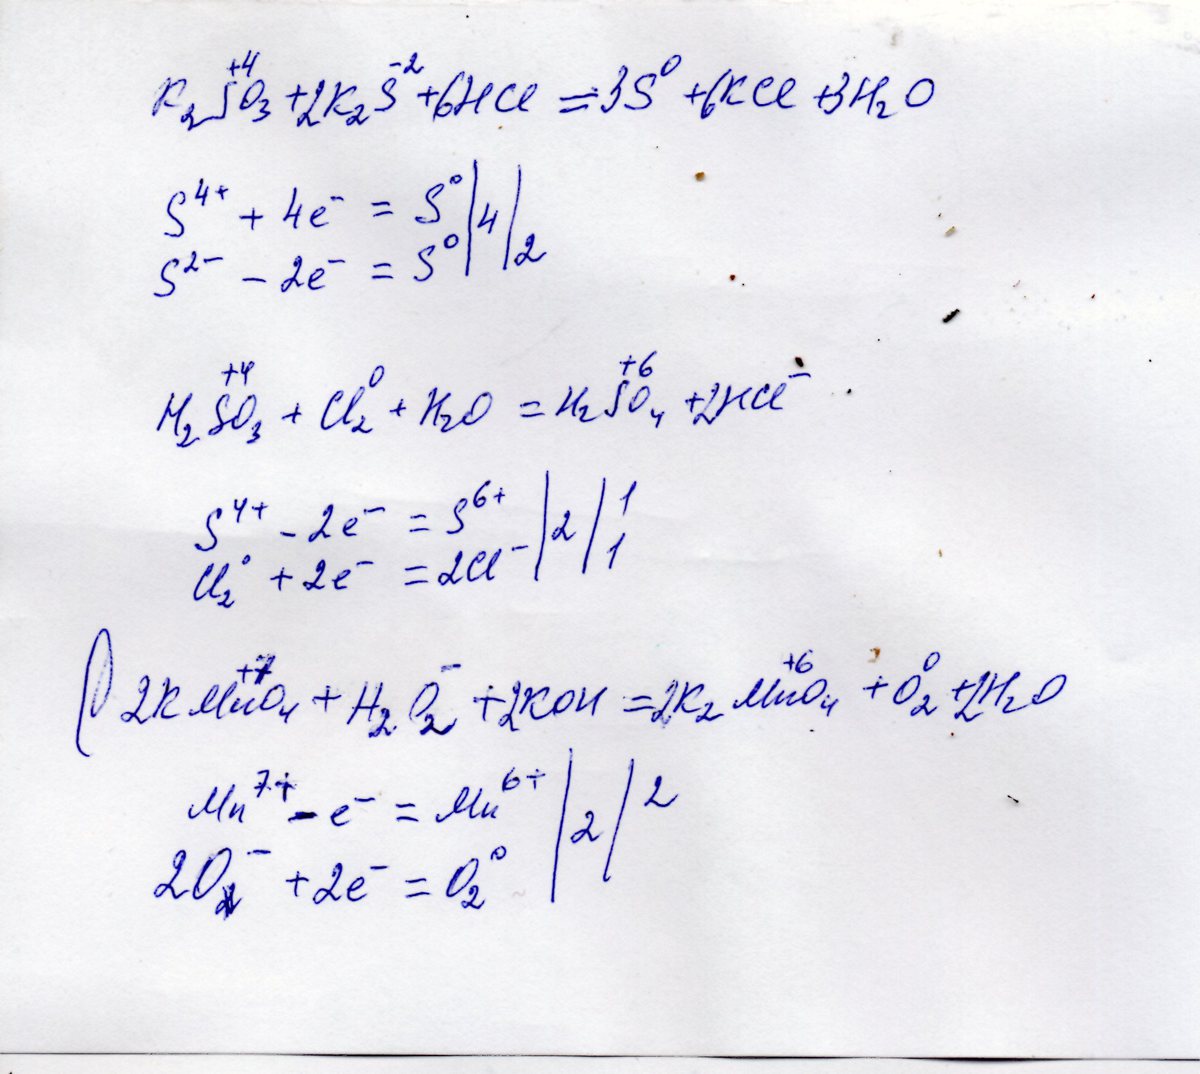 K₂S⁺⁴O₃ + 2K₂S⁻² + 6HCl = 3S⁰ + 6KCl + 3H₂O
S⁴⁺ + 4e⁻ = S⁰ | 4 |
S²⁻ − 2e⁻ = S⁰ | | 2
H₂S⁺⁴O₃ + Cl₂⁰ + H₂O = H₂S⁺⁶O₄ + 2HCl⁻
S⁴⁺ − 2e⁻ = S⁶⁺ | 2 | 1
Cl₂⁰ + 2e⁻ = 2Cl⁻ | | 1
2KMn⁺⁷O₄ + H₂O₂⁻ + 2KOH = 2K₂Mn⁺⁶O₄ + O₂⁰ + 2H₂O
Mn⁷⁺ − e⁻ = Mn⁶⁺ | 2 | 2
2O⁻ + 2e⁻ = O₂⁰